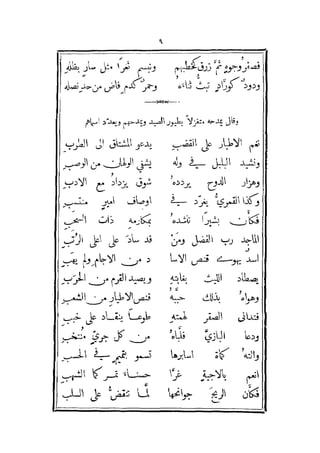 ٩
فصفر وجوه ثمَّ زرق كخطبهم   وتبسم ثغرًا مثل سارٍ بظلهِ
وردٌ كورَّادٍ تبثُّ ثناءهُ   وحمرٌ كدمٍ فاض من حدِ نصلهِ
وقال يمدحه متغزلاً بطيور الصيد ويمدحهم ويعدّد اسماءهم
نغم الاطيار على القضبِ   يدعو المشتاق الى الطربِ
ونشيد البلبل في ولهٍ   يشفي الولهان من الوصبِ
وهزار الدوح يرددهُ   شوق يزدادُ مع الادبِ
وكذا القمريُّ يغرّد في   اوصاف اميرٍ منتسبِ
فكأن بشيرًا ناشدهُ   بمكارمهِ ذات السحبِ
الماجد رب الفضل ومَنْ   قد سادَ على اعلى الرُتبِ
اسدٌ يهوى قنص الاسا   د من الاجام ولم يهبِ
يصطاد الليث بغابتهِ   ويصيد القرم من الحَرَبِ
وهواهُ بذلك حبَّبهُ   قنص الاطيار من الشعبِ
فتدانى الصقر لهمتهِ   طوعًا ينقاد على خببِ
ودعا البازيَّ فلبَّاهُ   من كل جريٍّ منتخبِ
واتتهُ كماة اسايرها   تسمو بتميمٍ في الحسبِ
انعم بالاجيةٍ غرًّا   حسناء تمر كما الشهبِ
فكأن الريحَ جوانحها   لمَّا تنقضُّ على السلبِ